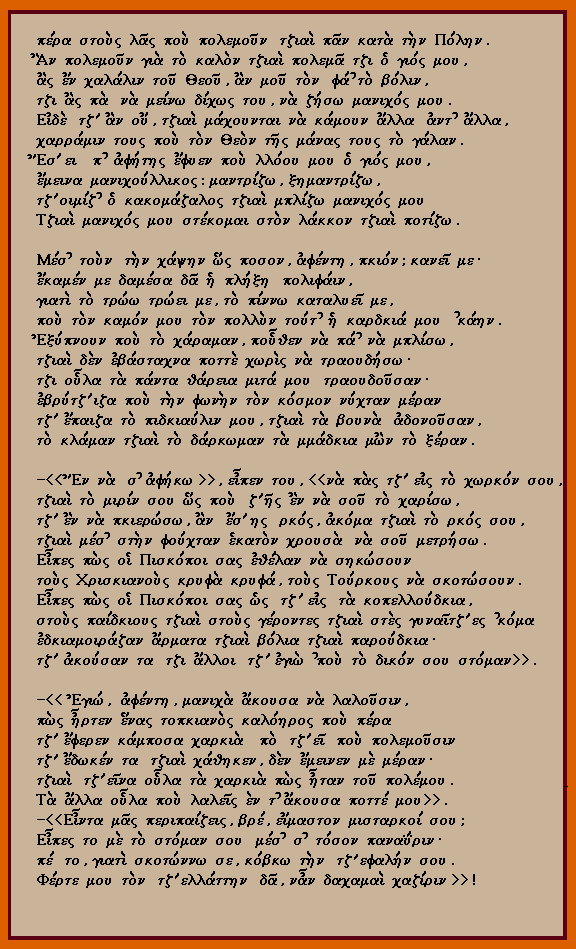 πέρα στοὺς λᾶς ποὺ πολεμοῦν τζιαὶ πᾶν κατὰ τὴν Πόλην.
Ἂν πολεμοῦν γιὰ τὸ καλὸν τζιαὶ πολεμᾶ τζι ὁ γιός μου,
ἂς ἔν χαλάλιν τοῦ Θεοῦ, ἂν μοῦ τὸν φά᾿ τὸ βόλιν,
τζι ἂς πὰ νὰ μείνω δίχως του, νὰ ζήσω μανιχός μου.
Εἰδὲ τζ᾿ ἂν οὔ, τζιαὶ μάχουνται νὰ κάμουν ἄλλα ἀντ᾿ ἄλλα,
χαρράμιν τους ποὺ τὸν Θεὸν τῆς μάνας τους τὸ γάλαν.
Ἔσ᾿ ει π᾿ ἀφήτης ἔφυεν ποὺ λλόου μου ὁ γιός μου,
ἔμεινα μανιχούλλικος: μαντρίζω, ξημαντρίζω,
τζ᾿ οιμίζ᾿ ὁ κακομάζαλος τζιαὶ μπλίζω μανιχός μου
Τζιαὶ μανιχός μου στέκομαι στὸν λάκκον τζιαὶ ποτίζω.

Μέσ᾿ τοὺν τὴν χάψην ὣς ποσον, ἀφέντη, πκιόν; κανεῖ με·
ἔκαμέν με δαμέσα δᾶ ἡ πλήξη πολιφάιν,
γιατὶ τὸ τρώω τρώει με, τὸ πίννω καταλυεῖ με,
ποὺ τὸν καμόν μου τὸν πολλὺν τούτ᾿ ἡ καρδκιά μου ᾿κάην.
Ἐξύπνουν ποὺ τὸ χάραμαν, ποὖθεν νὰ πά᾿ νὰ μπλίσω,
τζιαὶ δὲν ἐβάσταχνα ποττὲ χωρὶς νὰ τραουδήσω·
τζι οὗλα τὰ πάντα θάρεια μιτά μου τραουδοῦσαν·
ἐβρύτζ᾿ιζα ποὺ τὴν φωνὴν τὸν κόσμον νύχταν μέραν
τζ᾿ ἔπαιζα τὸ πιδκιαύλιν μου, τζιαὶ τὰ βουνὰ ἀδονοῦσαν,
τὸ κλάμαν τζιαὶ τὸ δάρκωμαν τὰ μμάδκια μῶν τὸ ξέραν.

-<<Ἔν νὰ σ᾿ ἀφήκω>>, εἶπεν του, <<νὰ πᾶς τζ᾿ εἰς τὸ χωρκόν σου,
τζιαὶ τὸ μιρίν σου ὥς ποὺ ζ᾿ῆς ἒν νὰ σοῦ τὸ χαρίσω,
τζ᾿ ἒν νὰ πκιερώσω, ἂν ἔσ᾿ης ρκός, ἀκόμα τζιαὶ τὸ ρκός σου,
τζιαὶ μέσ᾿ στὴν φούχταν ἑκατὸν χρουσὰ νὰ σοῦ μετρήσω.
Εἶπες πὼς οἱ Πισκόποι σας ἐθέλαν νὰ σηκώσουν
τοὺς Χρισκιανοὺς κρυφὰ κρυφά, τοὺς Τούρκους νὰ σκοτώσουν.
Εἶπες πὼς οἱ Πισκόποι σας ὡς τζ᾿ εἰς τὰ κοπελλούδκια,
στοὺς παίδκιους τζιαὶ στοὺς γέροντες τζιαὶ στὲς γυναῖτζ᾿ες ᾿κόμα
ἐδκιαμοιράζαν ἄρματα τζιαὶ βόλια τζιαὶ παρούδκια·
τζ᾿ ἀκούσαν τα τζι ἄλλοι τζ᾿ ἐγιὼ ᾿ποὺ τὸ δικόν σου στόμαν>>.

-<<Ἐγιώ, ἀφέντη, μανιχὰ ἄκουσα νὰ λαλοῦσιν,
πὼς ἦρτεν ἕνας τοπκιανὸς καλόηρος ποὺ πέρα
τζ᾿ ἔφερεν κάμποσα χαρκιὰ πὸ τζ᾿εῖ ποὺ πολεμοῦσιν
τζ᾿ ἔδωκέν τα τζιαὶ χάθηκεν, δὲν ἔμεινεν μὲ μέραν·
τζιαὶ τζ᾿εῖνα οὗλα τὰ χαρκιὰ πὼς ἦταν τοῦ πολέμου.
Τὰ ἄλλα οὗλα ποὺ λαλεῖς ἐν τ᾿ ἄκουσα ποττέ μου>>.
-<<Εἶντα μᾶς περιπαίζεις, βρέ, εἴμαστον μισταρκοί σου;
Εἶπες το μὲ τὸ στόμαν σου μέσ᾿ σ᾿ τόσον παναΰριν·
πέ το, γιατὶ σκοτώννω σε, κόβκω τὴν τζ᾿εφαλήν σου.
Φέρτε μου τὸν τζ᾿ελλάττην δᾶ, νἆν δαχαμαὶ χαζίριν>>!